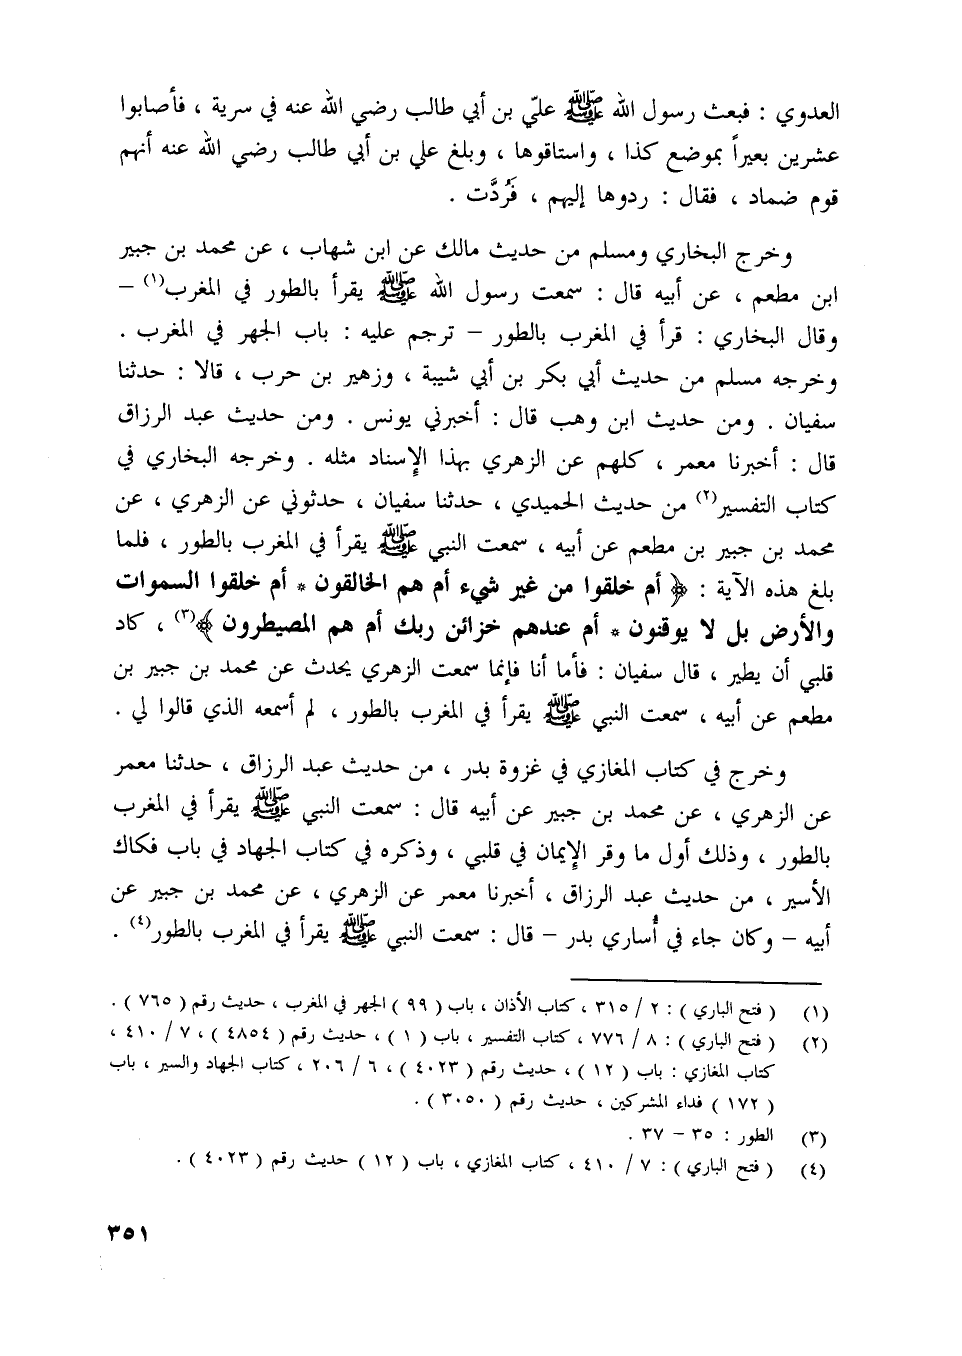 العدوي : فبعث رسول الله ﷺ عليّ بن أبي طالب رضي الله عنه في سرية ، فأصابوا
عشرين بعيراً بموضع كذا ، واستاقوها ، وبلغ علي بن أبي طالب رضي الله عنه أنهم
قوم ضماد ، فقال : ردوها إليهم ، فَرُدَّت .
وخرج البخاري ومسلم من حديث مالك عن ابن شهاب ، عن محمد بن جبير
ابن مطعم ، عن أبيه قال : سمعت رسول الله ﷺ يقرأ بالطور في المغرب(١) –
وقال البخاري : قرأ في المغرب بالطور – ترجم عليه : باب الجهر في المغرب .
وخرجه مسلم من حديث أبي بكر بن أبي شيبة ، وزهير بن حرب ، قالا : حدثنا
سفيان . ومن حديث ابن وهب قال : أخبرني يونس . ومن حديث عبد الرزاق
قال : أخبرنا معمر ، كلهم عن الزهري بهذا الإسناد مثله . وخرجه البخاري في
كتاب التفسير(٢) من حديث الحميدي ، حدثنا سفيان ، حدثوني عن الزهري ، عن
محمد بن جبير بن مطعم عن أبيه ، سمعت النبي ﷺ يقرأ في المغرب بالطور ، فلما
بلغ هذه الآية : ﴿ أم خلقوا من غير شيء أم هم الخالقون * أم خلقوا السموات
والأرض بل لا يوقنون * أم عندهم خزائن ربك أم هم المصيطرون ﴾(٣) ، كاد
قلبي أن يطير ، قال سفيان : فأما أنا فإنما سمعت الزهري يحدث عن محمد بن جبير بن
مطعم عن أبيه ، سمعت النبي ﷺ يقرأ في المغرب بالطور ، لم أسمعه الذي قالوا لي .
وخرج في كتاب المغازي في غزوة بدر ، من حديث عبد الرزاق ، حدثنا معمر
عن الزهري ، عن محمد بن جبير عن أبيه قال : سمعت النبي ﷺ يقرأ في المغرب
بالطور ، وذلك أول ما وقر الإيمان في قلبي ، وذكره في كتاب الجهاد في باب فكاك
الأسير ، من حديث عبد الرزاق ، أخبرنا معمر عن الزهري ، عن محمد بن جبير عن
أبيه – وكان جاء في أُساري بدر – قال : سمعت النبي ﷺ يقرأ في المغرب بالطور(٤) .
(١) ( فتح الباري ) : ٢ / ٣١٥ ، كتاب الأذان ، باب ( ٩٩ ) الجهر في المغرب ، حديث رقم ( ٧٦٥ ) .
(٢) ( فتح الباري ) : ٨ / ٧٧٦ ، كتاب التفسير ، باب ( ١ ) ، حديث رقم ( ٤٨٥٤ ) ، ٧ / ٤١٠ ،
كتاب المغازي : باب ( ١٢ ) ، حديث رقم ( ٤٠٢٣ ) ، ٦ / ٢٠٦ ، كتاب الجهاد والسير ، باب
( ١٧٢ ) فداء المشركين ، حديث رقم ( ٣٠٥٠ ) .
(٣) الطور : ٣٥ – ٣٧ .
(٤) ( فتح الباري ) : ٧ / ٤١٠ ، كتاب المغازي ، باب ( ١٢ ) حديث رقم ( ٤٠٢٣ ) .
٣٥١